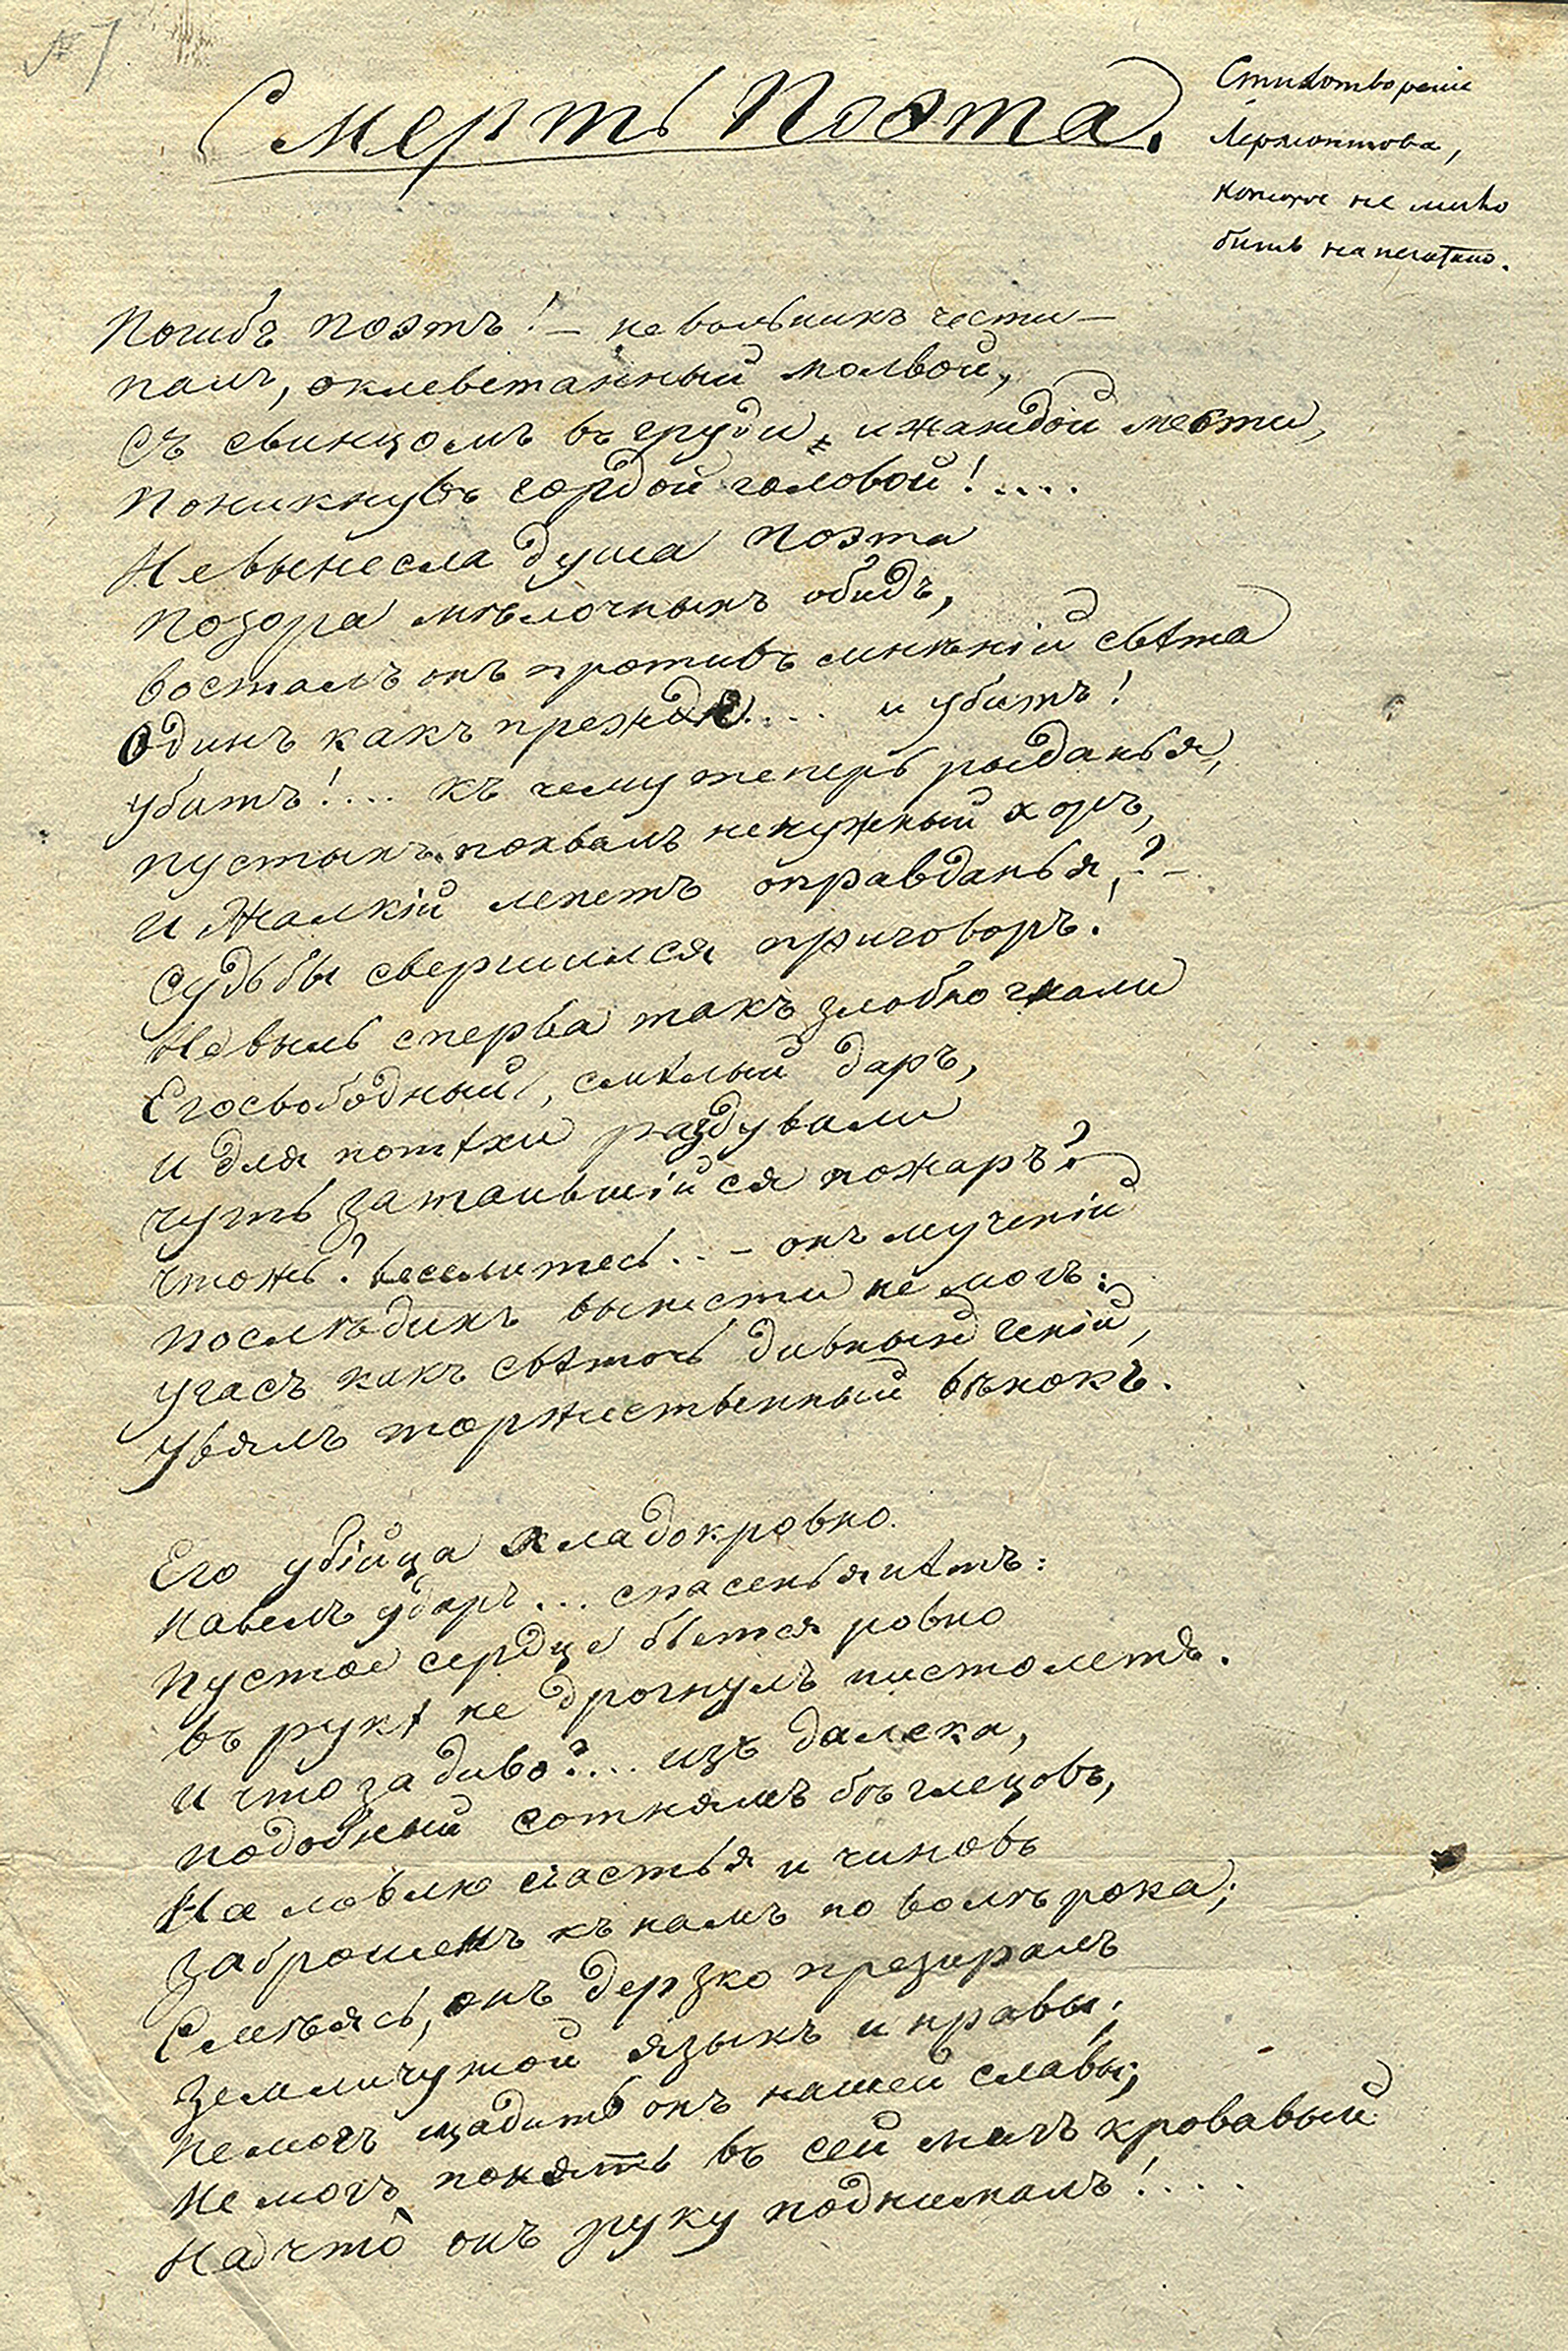 № 7
Смерть Поэта.
Стихотвореніе
Лермонтова,
которое не могло
быть напечатано.
Погибъ поэтъ! – невольникъ чести –
палъ, оклеветанный молвой,
Съ свинцомъ въ груди, и жаждой мести,
Поникнувъ гордой головой!....
Не вынесла душа поэта
Позора мѣлочныхъ обидъ,
Восталъ онъ противъ мнѣній свѣта
Одинъ какъ прежде.... и убитъ!
убитъ!.... къ чему теперь рыданья,
пустыхъ похвалъ ненужный хоръ,
и жалкій лепетъ оправданья,?–
судьбы свершился приговоръ!
Не выль сперва такъ злобно гнали
Его свободный, смѣлый даръ,
и для потѣхи раздували
чуть затаившійся пожаръ?
чтожь? веселитесь... – онъ мученій
послѣднихъ вынести не могъ:
Угасъ какъ свѣточь дивный геній,
Увялъ торжественный вѣнокъ.
Его убійца хладокровно
навелъ ударъ... спасенья нѣтъ:
Пустое сердце бьется ровно
въ рукѣ не дрогнулъ пистолетъ.
и что за диво?.... изъ далека,
подобный сотнямъ бѣглецовъ,
На ловлю счастья и чиновъ
Заброшенъ къ намъ по волѣ рока;
Смѣясь, онъ дерзко презиралъ
Земли чужой языкъ и нравы;
Не могъ щадить онъ нашей славы;
Не могъ понять въ сей мигъ кровавый
На что онъ руку поднималъ!....